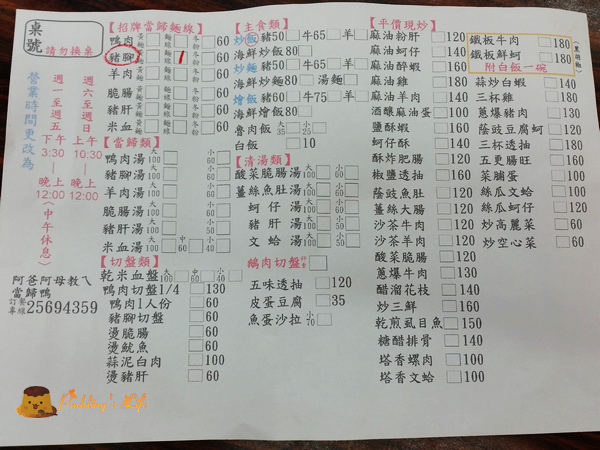 桌號
請勿換桌
營業時間更改為
週一至週五
下午
3:30
晚上
12:00
週六
週日
上午
10:30
晚上
12:00
(中午休息)
阿爸阿母教ㄟ
當歸鴨
訂餐專線25694359
【招牌當歸麵線】
鴨肉 黃麵 麵線 冬粉 60
豬腳 黃麵 麵線 1 冬粉 60
羊肉 黃麵 麵線 冬粉 60
脆腸 黃麵 麵線 冬粉 60
豬肝 黃麵 麵線 冬粉 60
米血 黃麵 麵線 冬粉 60
【當歸類】
鴨肉湯 大100 小60
豬腳湯 大100 小60
羊肉湯 大100 小60
脆腸湯 大100 小60
豬肝湯 大100 小60
米血湯 大100 中60 小40
【切盤類】
乾米血盤 大100 中50 小40
鴨肉切盤1/4 130
鴨肉1人份 60
豬腳切盤 60
燙脆腸 60
燙魷魚 60
蒜泥白肉 100
燙豬肝 60
【主食類】
炒飯 豬50 牛65 羊
海鮮炒飯80
炒麵 豬50 牛65 羊
海鮮炒麵80 湯麵
燴飯 豬60 牛75 羊
海鮮燴飯80
魯肉飯 大35 小25
白飯 10
【清湯類】
酸菜脆腸湯 大100 小50
薑絲魚肚湯 大100 小50
蚵仔湯 大100 小50
豬肝湯 大100 小50
文蛤湯 大100 小50
鵝肉切盤 時價
五味透抽 120
皮蛋豆腐 35
魚蛋沙拉 小70
【平價現炒】
麻油粉肝 120
麻油蚵仔 140
麻油醉蝦 160
麻油雞 180
麻油羊肉 140
酒釀麻油蛋 100
鹽酥蝦 160
蚵仔酥 140
酥炸肥腸 120
椒鹽透抽 160
蔭豉魚肚 120
薑絲大腸 120
沙茶牛肉 120
沙茶羊肉 120
酸菜脆腸 120
蔥爆牛肉 130
醋溜花枝 140
炒三鮮 160
乾煎虱目魚 150
糖醋排骨 140
塔香螺肉 100
塔香文蛤 100
鐵板牛肉 180
鐵板鮮蚵 180
附白飯一碗
(黑胡椒)
蒜炒白蝦 140
三杯雞 180
蔥爆豬肉 130
蔭豉豆腐蚵 120
三杯透抽 180
五更腸旺 160
菜脯蛋 100
絲瓜文蛤 100
絲瓜蚵仔 120
炒高麗菜 60
炒空心菜 60
Pudding's Life